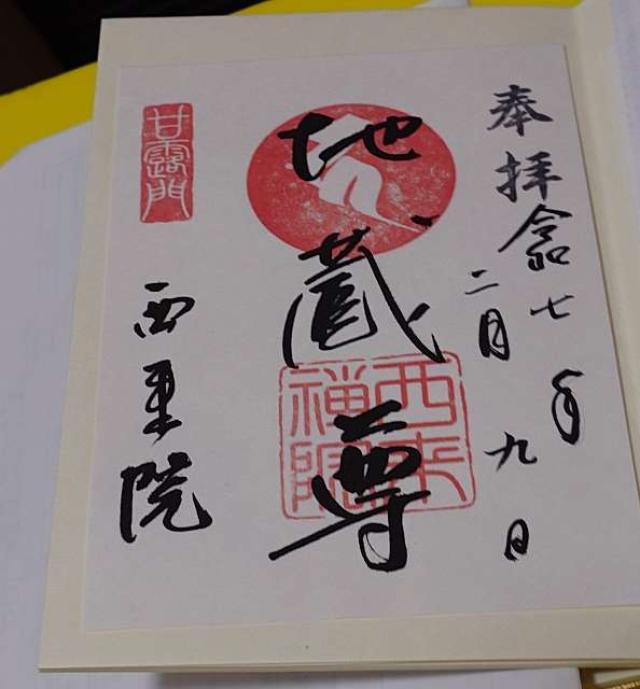 奉拝
令和七年
二月九日
地蔵尊
西来禅院
甘露門
西来院